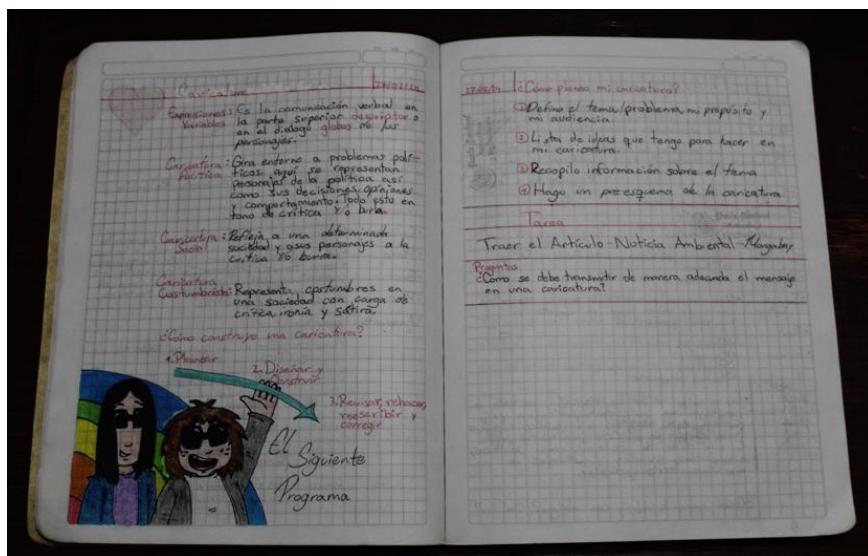 Caricatura
Expresiones: Es la comunicación verbal en
la parte superior descriptor o
en el dialogo globos de los
personajes.
Caricatura: Gira entorno a problemas polí-
Política ticos, aquí se representan
personajes de la política así
como sus decisiones, opiniones
y comportamiento. Todo esto en
tono de crítica y/o burla.
Caricatura: Refleja a una determinada
Social sociedad y a sus personajes a la
crítica y/o burla.
Caricatura
Costumbrista: Representa, costumbres en
una sociedad con carga de
crítica, ironía y sátira.
¿Cómo construyo una caricatura?
1. Planear
2. Diseñar y
Construir
3. Revisar, rehacer,
reescribir y
corregir
El
Siguiente
Programa
¿Cómo planeo mi caricatura?
1 Defino el tema/problema, mi propósito y
mi audiencia.
2 Lista de ideas que tengo para hacer en
mi caricatura.
3 Recopilo información sobre el tema
4 Hago un preesquema de la caricatura
Tarea
Traer el Artículo-Noticia Ambiental-Mongabay
Preguntas
¿Como se debe transmitir de manera adecuada el mensaje
en una caricatura?